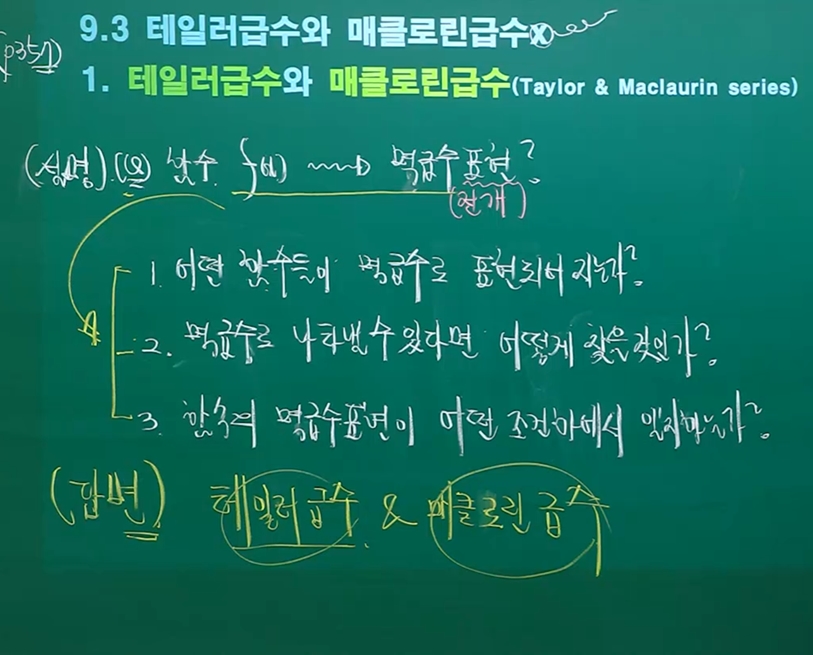 9.3 테일러급수와 매클로린급수
(p351)
1. 테일러급수와 매클로린급수(Taylor & Maclaurin series)
(설명) 함수 f(x) 멱급수 표현?
(전개)
1. 어떤 함수들이 멱급수로 표현되어 지는가?
2. 멱급수로 나타낼 수 있다면 어떻게 찾을것인가?
3. 함수의 멱급수표현이 어떤 조건하에서 일치하는가?
(답변) 테일러급수 & 매클로린급수